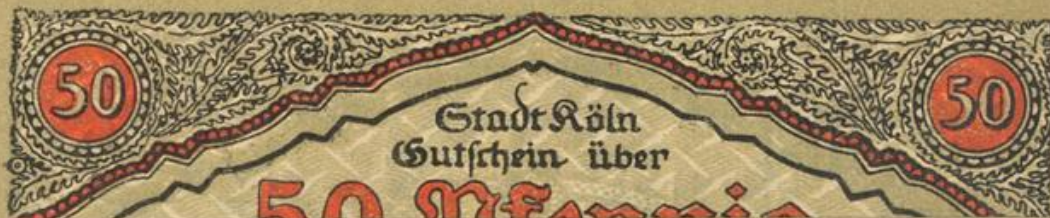 50 50
Stadt Köln
Gutschein über
50 Pfennig